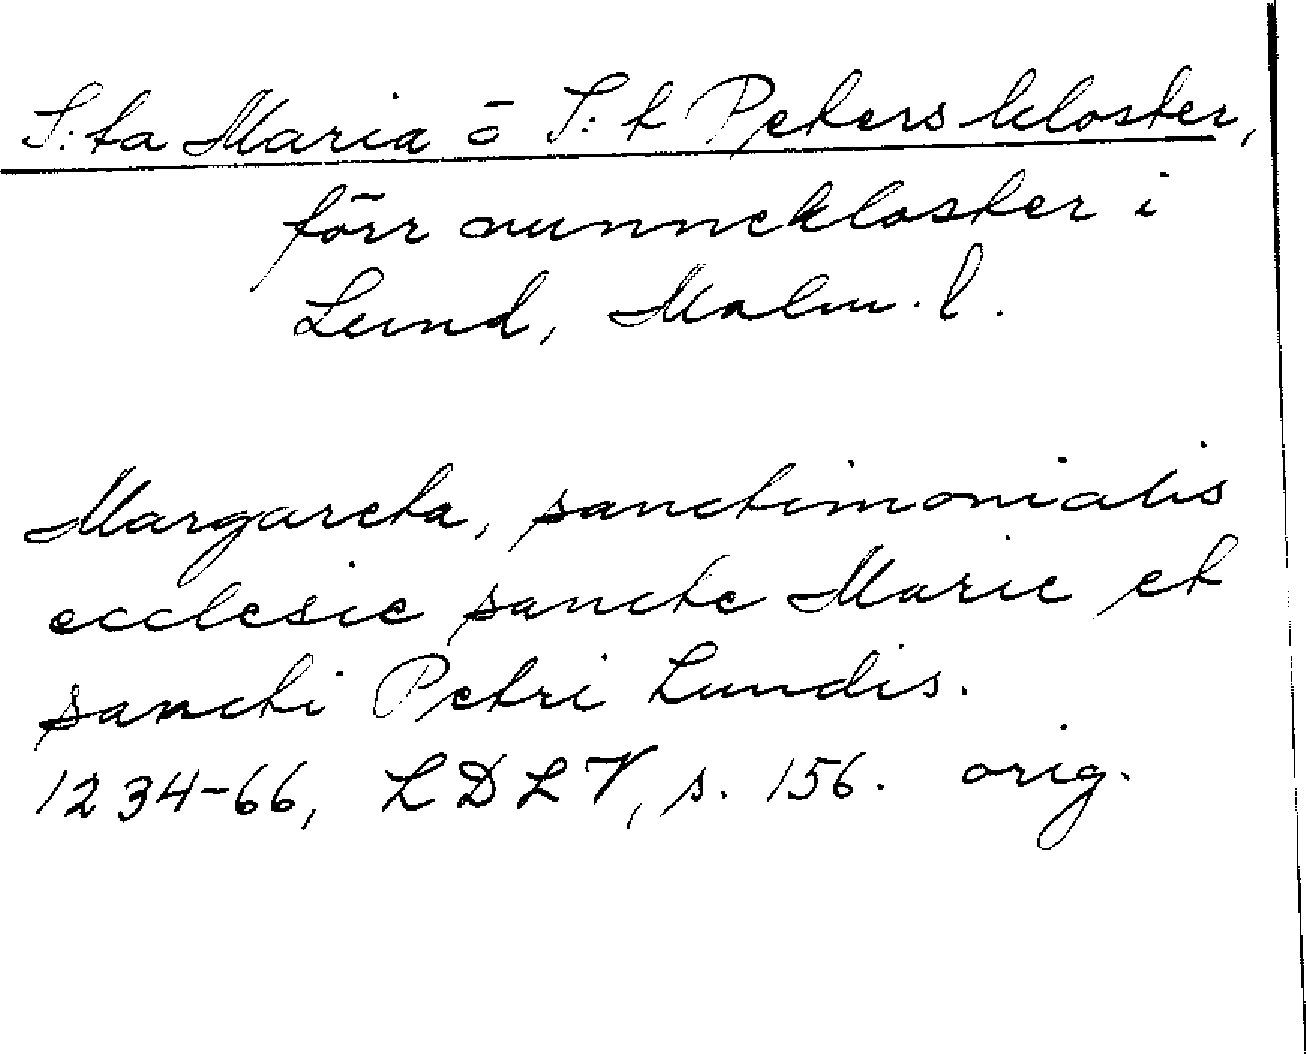 S:ta Maria o S:t Peters kloster,
förr nunnekloster i
Lund, Malm. l.
Margareta, sanctimonialis
ecclesie sancte Marie et
sancti Petri Lundis.
1234-66, LDLV, s. 156. orig.